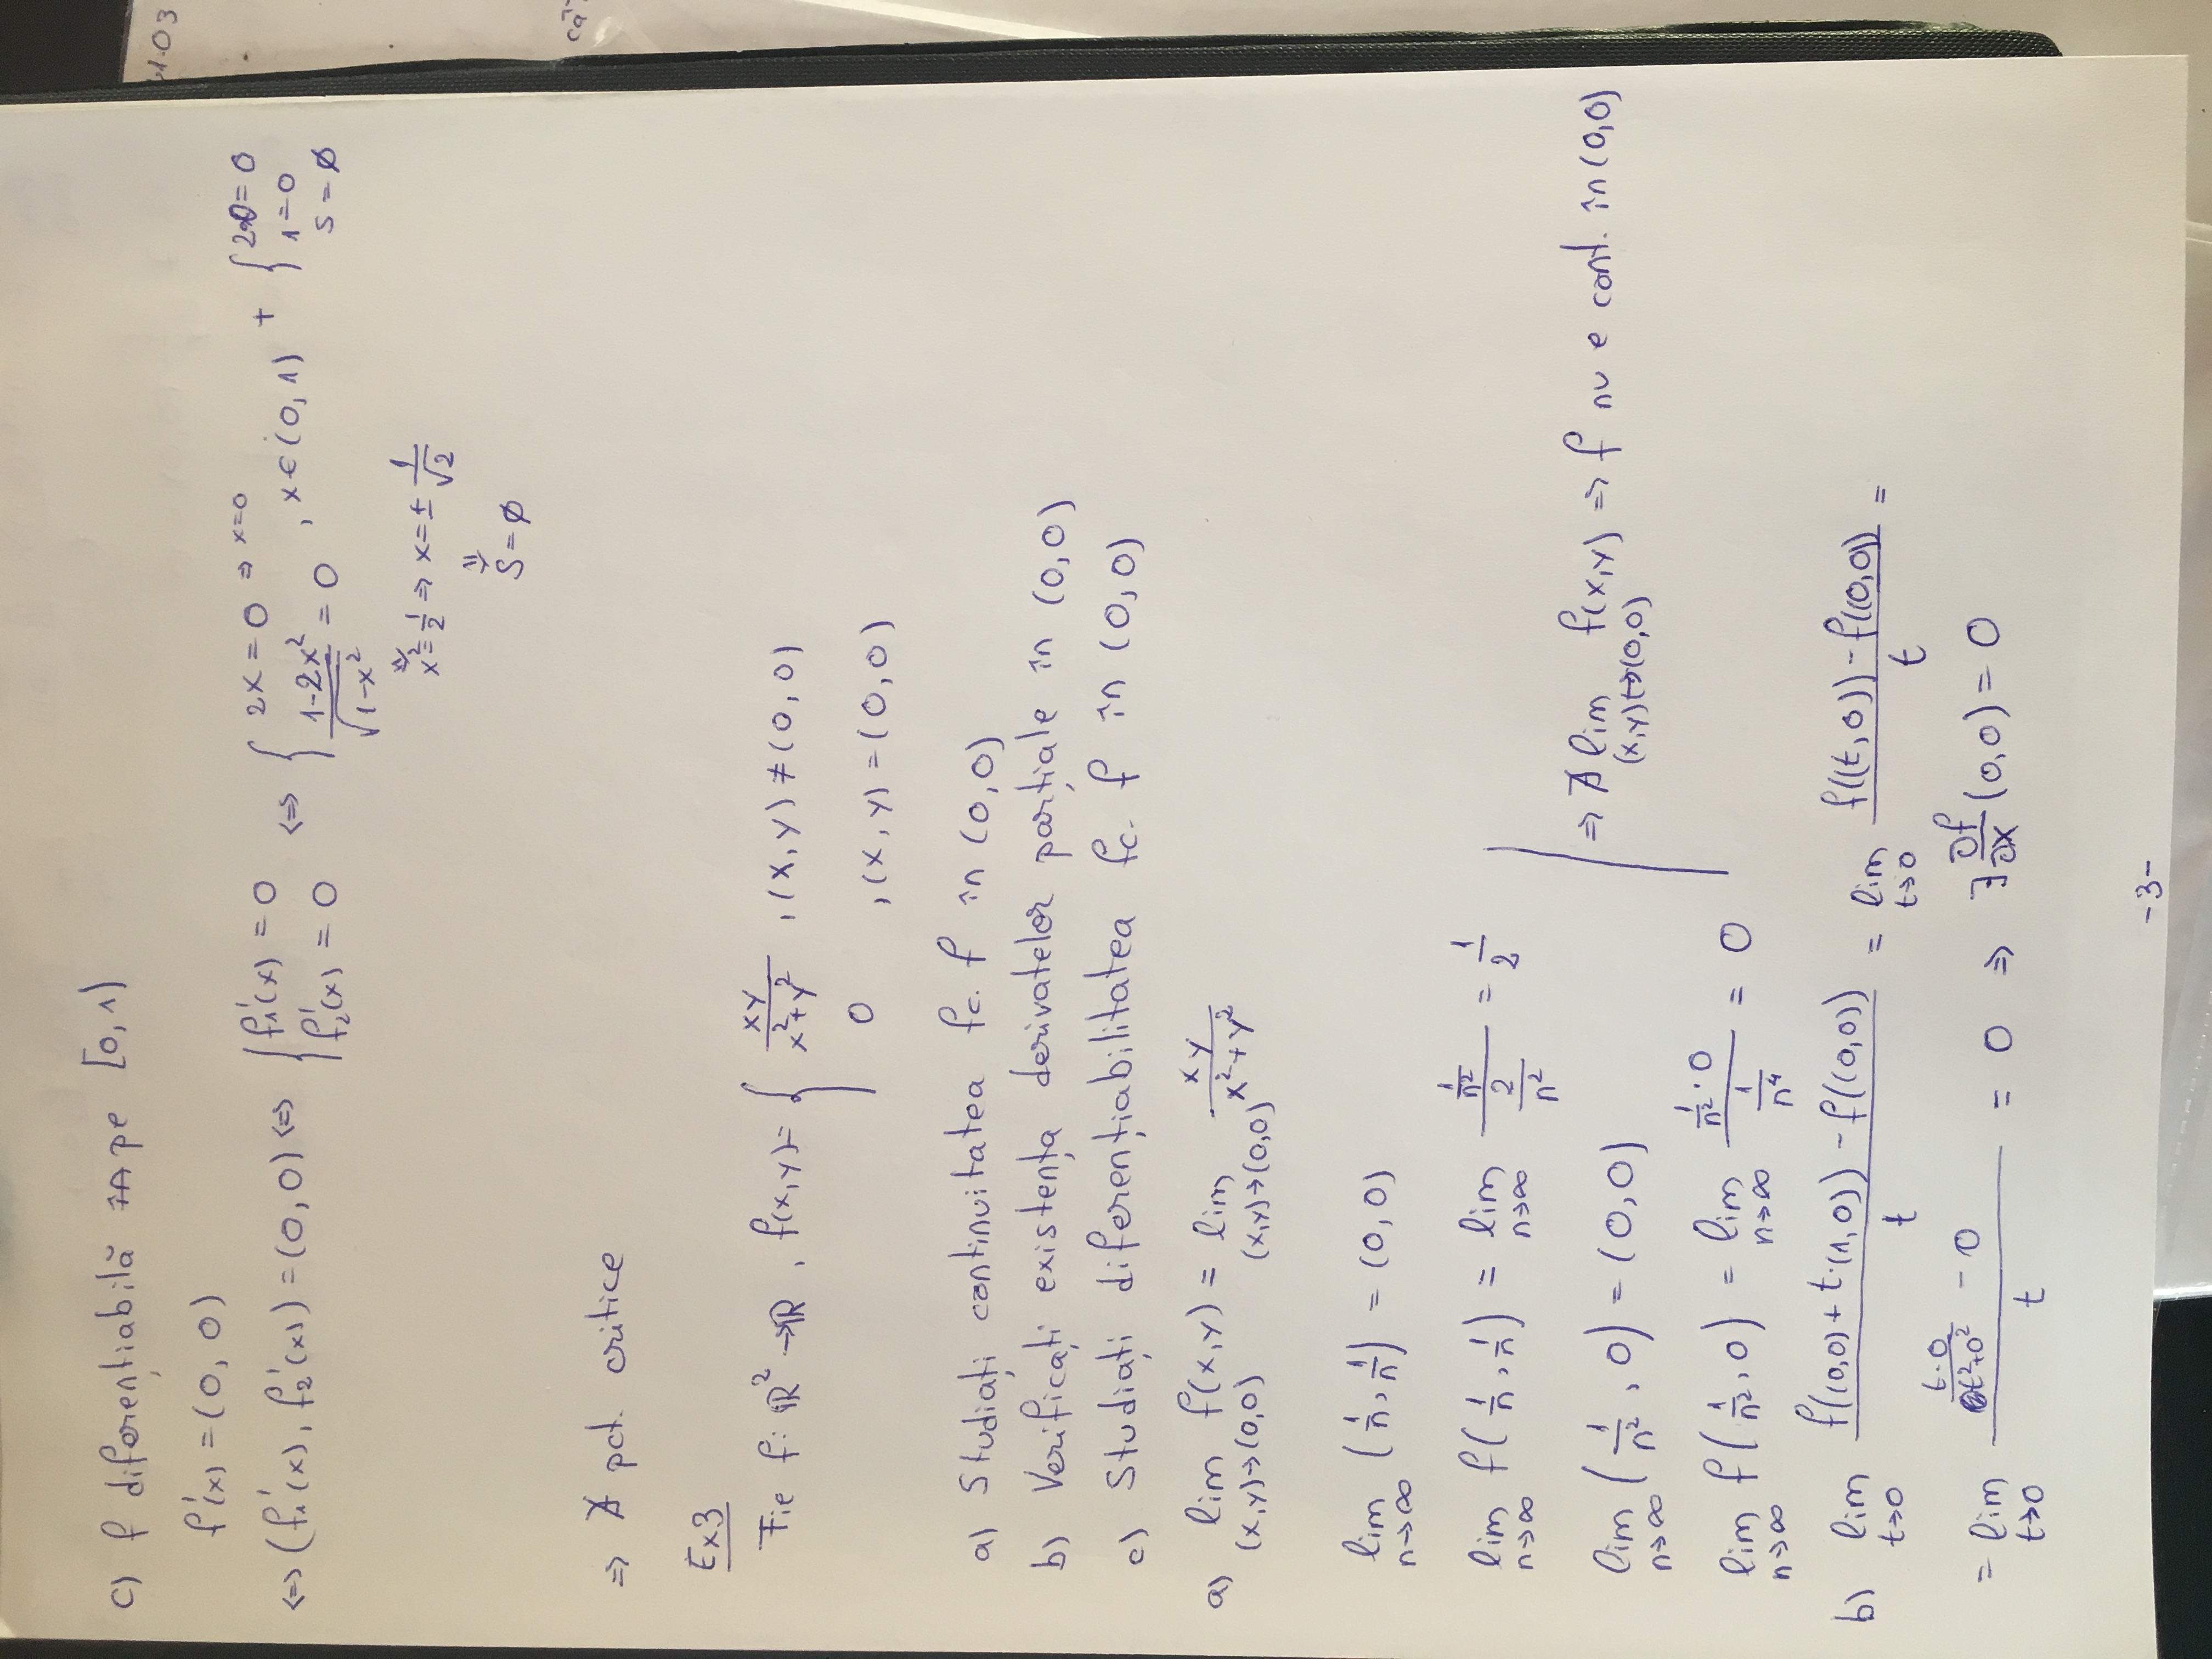 c) f diferențiabilă pe [0,1)
f'(x) = (0, 0)
⇔ (f₁'(x), f₂'(x)) = (0,0) ⇔ { f₁'(x) = 0 ; f₂'(x) = 0 ⇔ { 2x = 0 ⇒ x=0 ; (1-2x²)/√(1-x²) = 0 , x∈(0,1) + { 2·0 = 0 ; 1=0
S = ∅
x² = 1/2 ⇒ x = ± 1/√2
⇓
S = ∅
⇒ ∄ pct. critice
Ex3
Fie f: ℝ² → ℝ, f(x,y) = { xy/(x²+y²) , (x,y) ≠ (0,0)
0 , (x,y) = (0,0)
a) Studiați continuitatea fc. f în (0,0)
b) Verificați existența derivatelor parțiale în (0,0)
c) Studiați diferențiabilitatea fc. f în (0,0)
a) lim (x,y)→(0,0) f(x,y) = lim (x,y)→(0,0) xy/(x²+y²)
lim n→∞ (1/n, 1/n) = (0,0)
lim n→∞ f(1/n, 1/n) = lim n→∞ (1/n²)/(2/n²) = 1/2
lim n→∞ (1/n², 0) = (0,0)
⇒ ∄ lim (x,y)→(0,0) f(x,y) ⇒ f nu e cont. în (0,0)
lim n→∞ f(1/n², 0) = lim n→∞ (1/n² · 0)/(1/n⁴) = 0
b) lim t→0 (f((0,0) + t·(1,0)) - f((0,0)))/t = lim t→0 (f((t,0)) - f((0,0)))/t =
= lim t→0 ((t·0)/(t²+0²) - 0)/t = 0 ⇒ ∃ ∂f/∂x (0,0) = 0
-3-
1.03